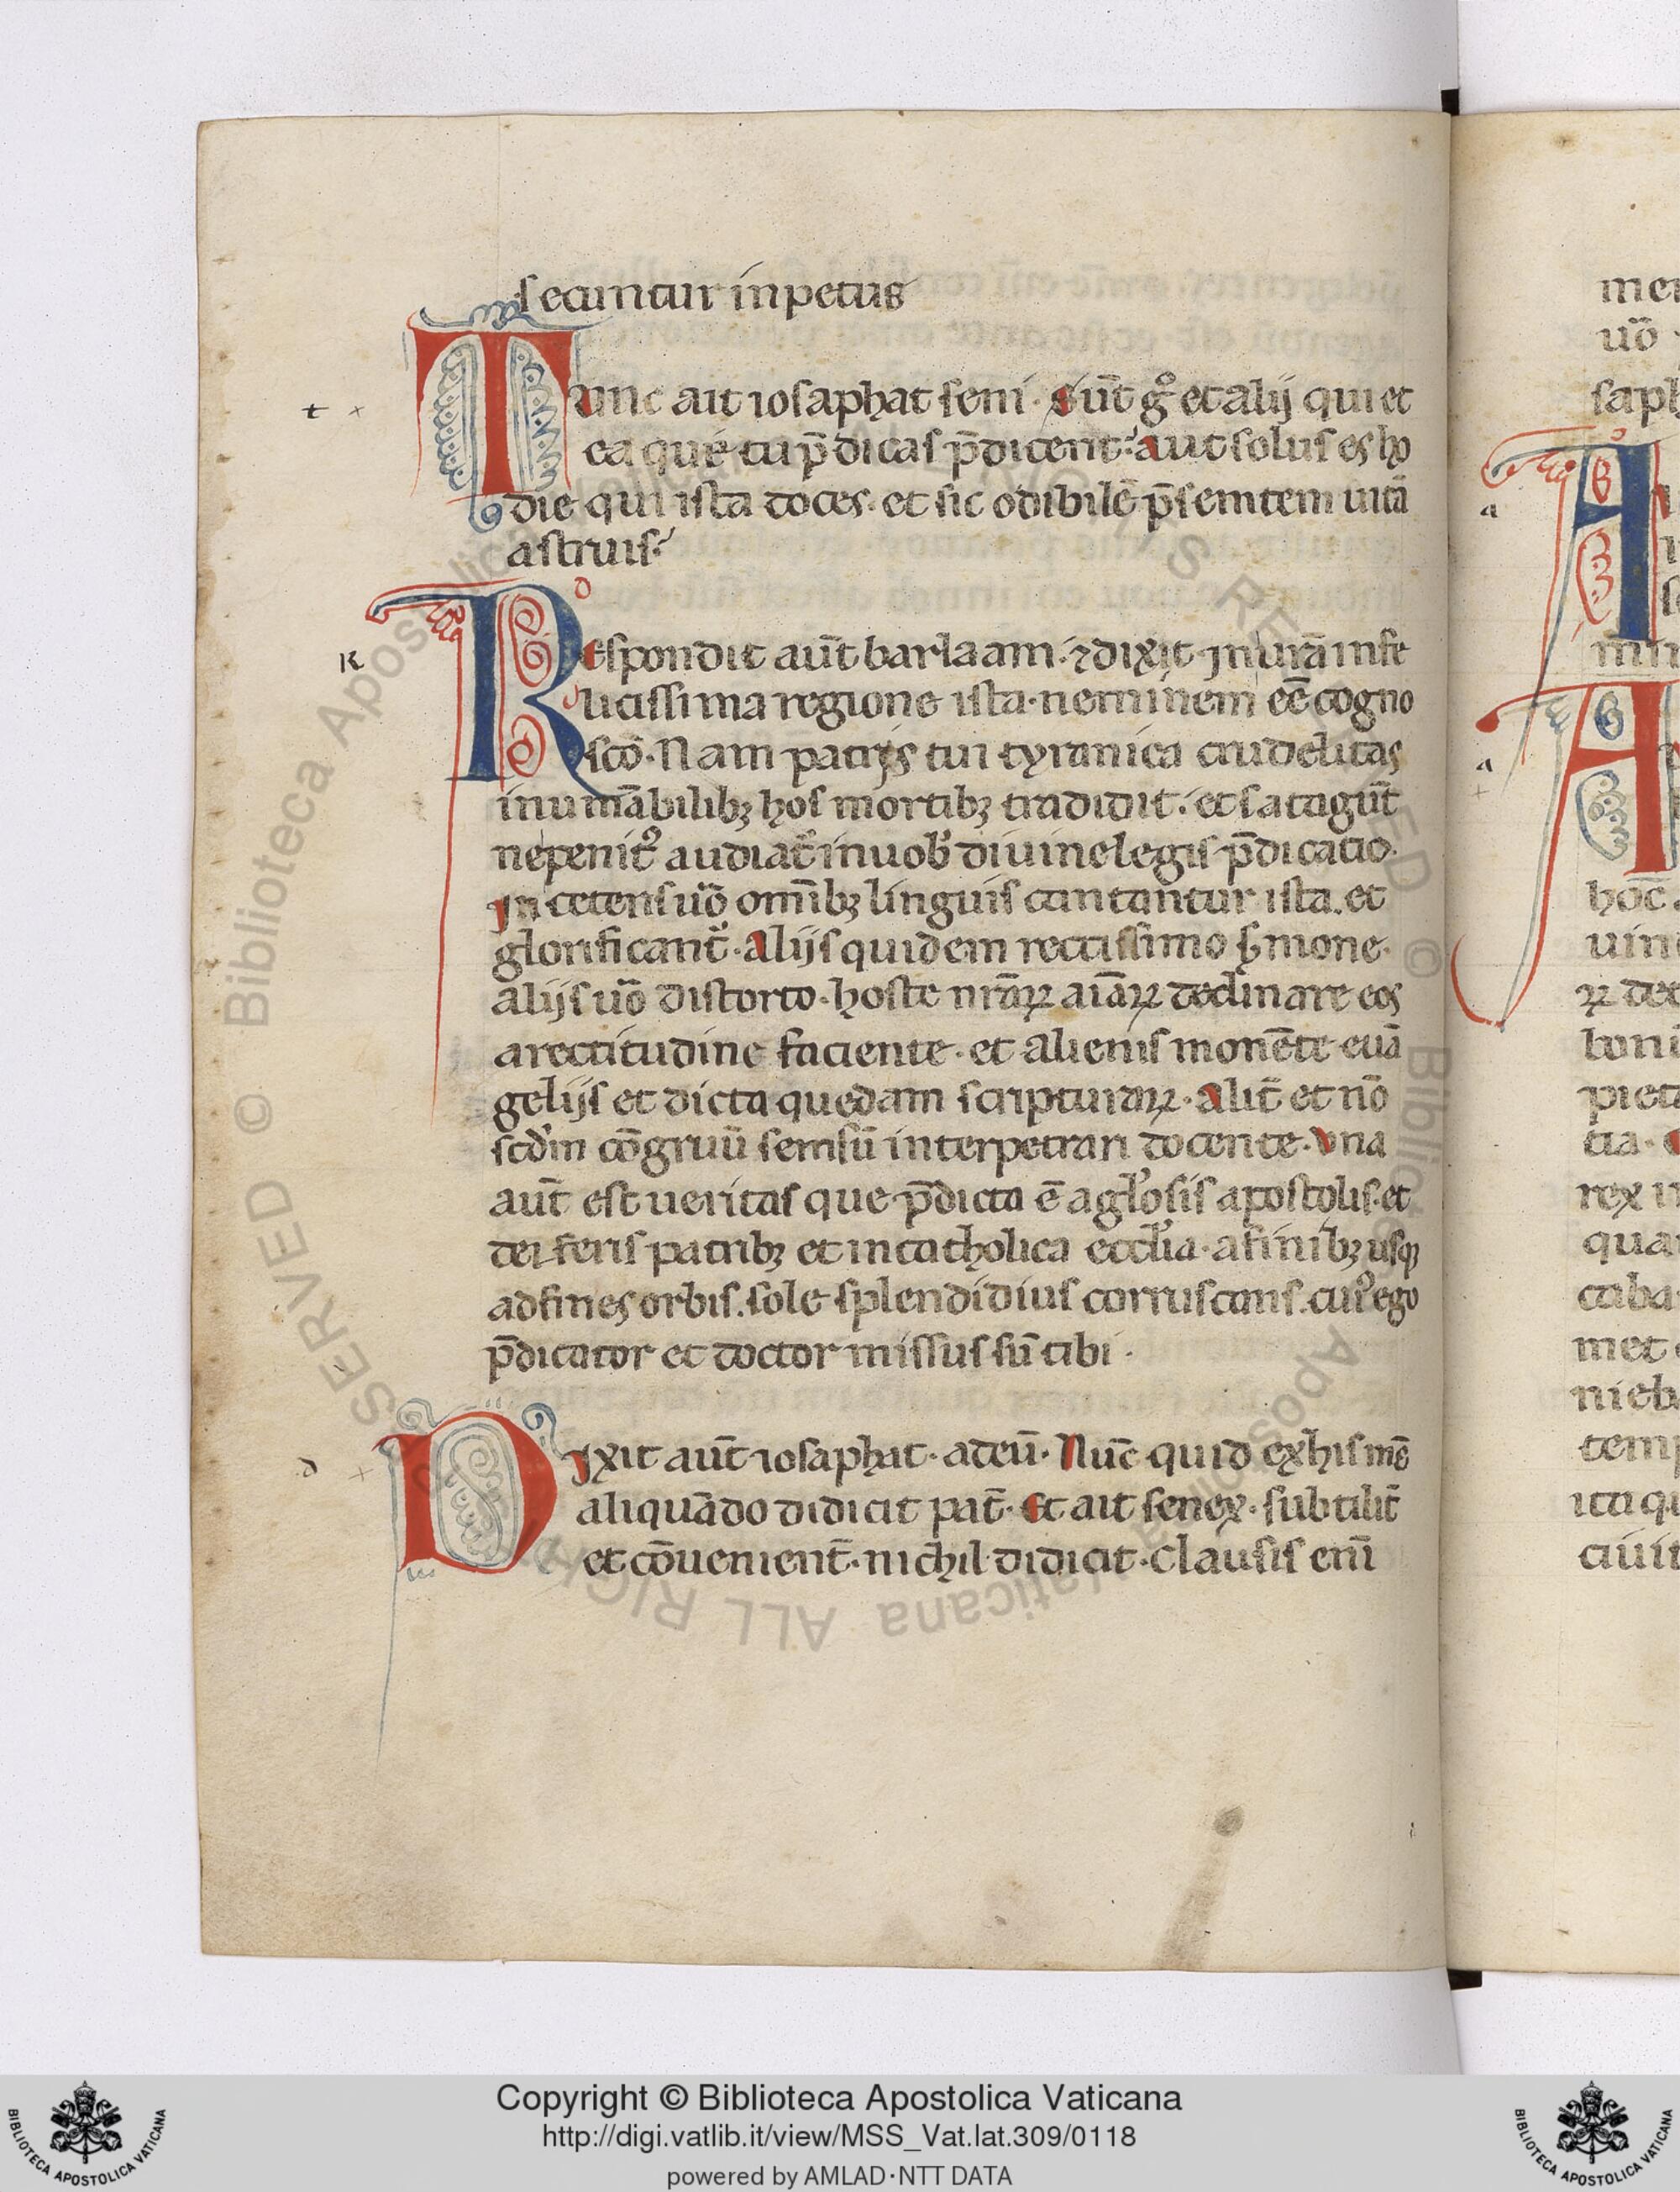 secuntur inpetus
Tunc ait iosaphat seni. sūt gͦ et alij qui et
ea que tu p̄dicas p̄dicent? aut solus es ho
die qui ista doces. et sic odibilē p̄semtem uitā
astruis?
Respondit aūt barlaam. ⁊ dixit. jn ur̄a infe
licissima regione ista. neminem eē̄ cogno
sco. Nam patris tui tyranica crudelitas
inumābilibꝫ hos mortibꝫ tradidit. et satagūt
ne penitꝰ audiat̄ in uob̄ diuine legis p̄dicatio.
jn ceteris uō omībꝫ linguis cantantur ista. et
glorificant̄. Alijs quidem rectissimo ẜmone.
alijs uō distorto. hoste nr̄aꝝ aīaꝝ declinare eos
a rectitudine faciente. et alienis monēte euā
gelijs et dicta quedam scripturaꝝ. Alit̄ et nō
scd̄m cōgruū sensū interpetrari docente. Vna
aūt est ueritas que p̄dicta ē a gl̄osis apostolis. et
dei feris patribꝫ et in catholica eccl̄ia. a finibꝫ usqꝫ
ad fines orbis. sole splendidius corruscans. cuiꝰ ego
p̄dicator et doctor missus sū tibi.
Dixit aūt iosaphat. ad eū. Nūc quid ex his mē
aliquādo didicit pat̄. Et ait senex. subtilit̄
et cōuenient̄. nichil didicit. Clausis eni̅
t
R
d
a
a
Copyright © Biblioteca Apostolica Vaticana
http://digi.vatlib.it/view/MSS_Vat.lat.309/0118
powered by AMLAD·NTT DATA
BIBLIOTECA APOSTOLICA VATICANA
BIBLIOTECA APOSTOLICA VATICANA